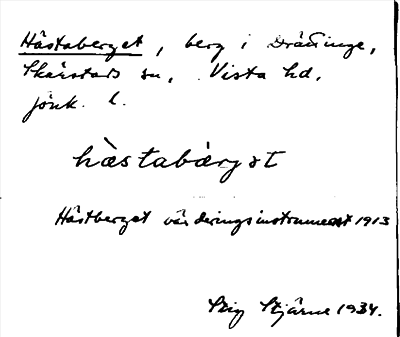 Hästaberget, berg i Drättinge,
Skärstads sn, Vista hd,
Jönk. l.
hàstabàrgət
Hästberget värderingsinstrument 1913
Stig Stjärne 1934.